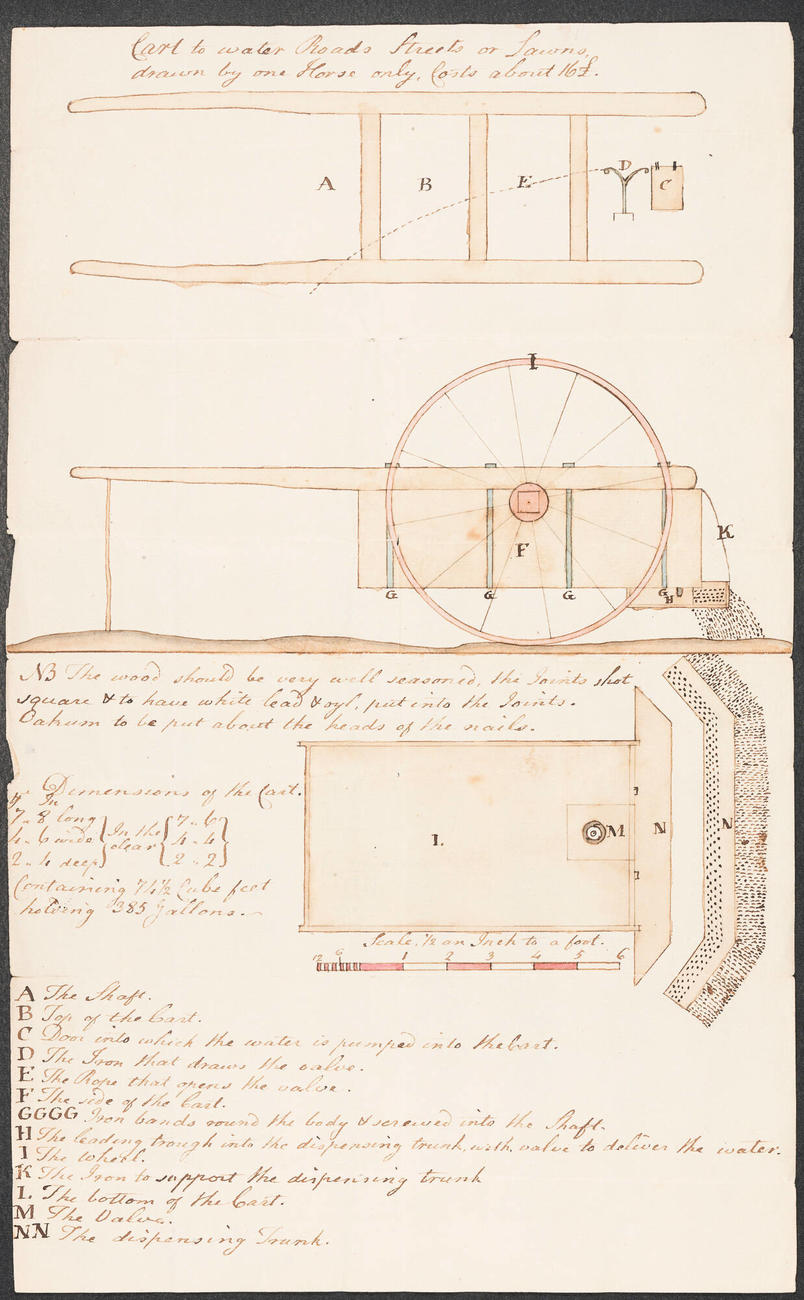 Cart to water Roads Streets or Lawns,
drawn by one Horse only, Costs about 16£.
A B E D C
I
F
K
G G G G H
NB The wood should be very well seasoned, the Joints shot
square & to have white lead & oyl, put into the Joints.
Oakum to be put about the heads of the nails.
Dimensions of the Cart.
Ft In
7 " 8 long } In the { 7 " 6
4 " 6 wide } clear { 4 " 4
2 " 4 deep } { 2 " 2
Containing 74½ Cube feet
holding 385 Gallons.
L M N N
Scale, ½ an Inch to a foot.
12 6 1 2 3 4 5 6
A The Shaft.
B Top of the Cart.
C Door into which the water is pumped into the Cart.
D The Iron that draws the valve.
E The Rope that opens the valve.
F The side of the Cart.
GGGG Iron bands round the body & screwed into the Shaft.
H The leading trough into the dispensing trunk, with valve to deliver the water.
I The wheel.
K The Iron to support the dispensing trunk
L The bottom of the Cart.
M The Valve.
NN The dispensing Trunk.